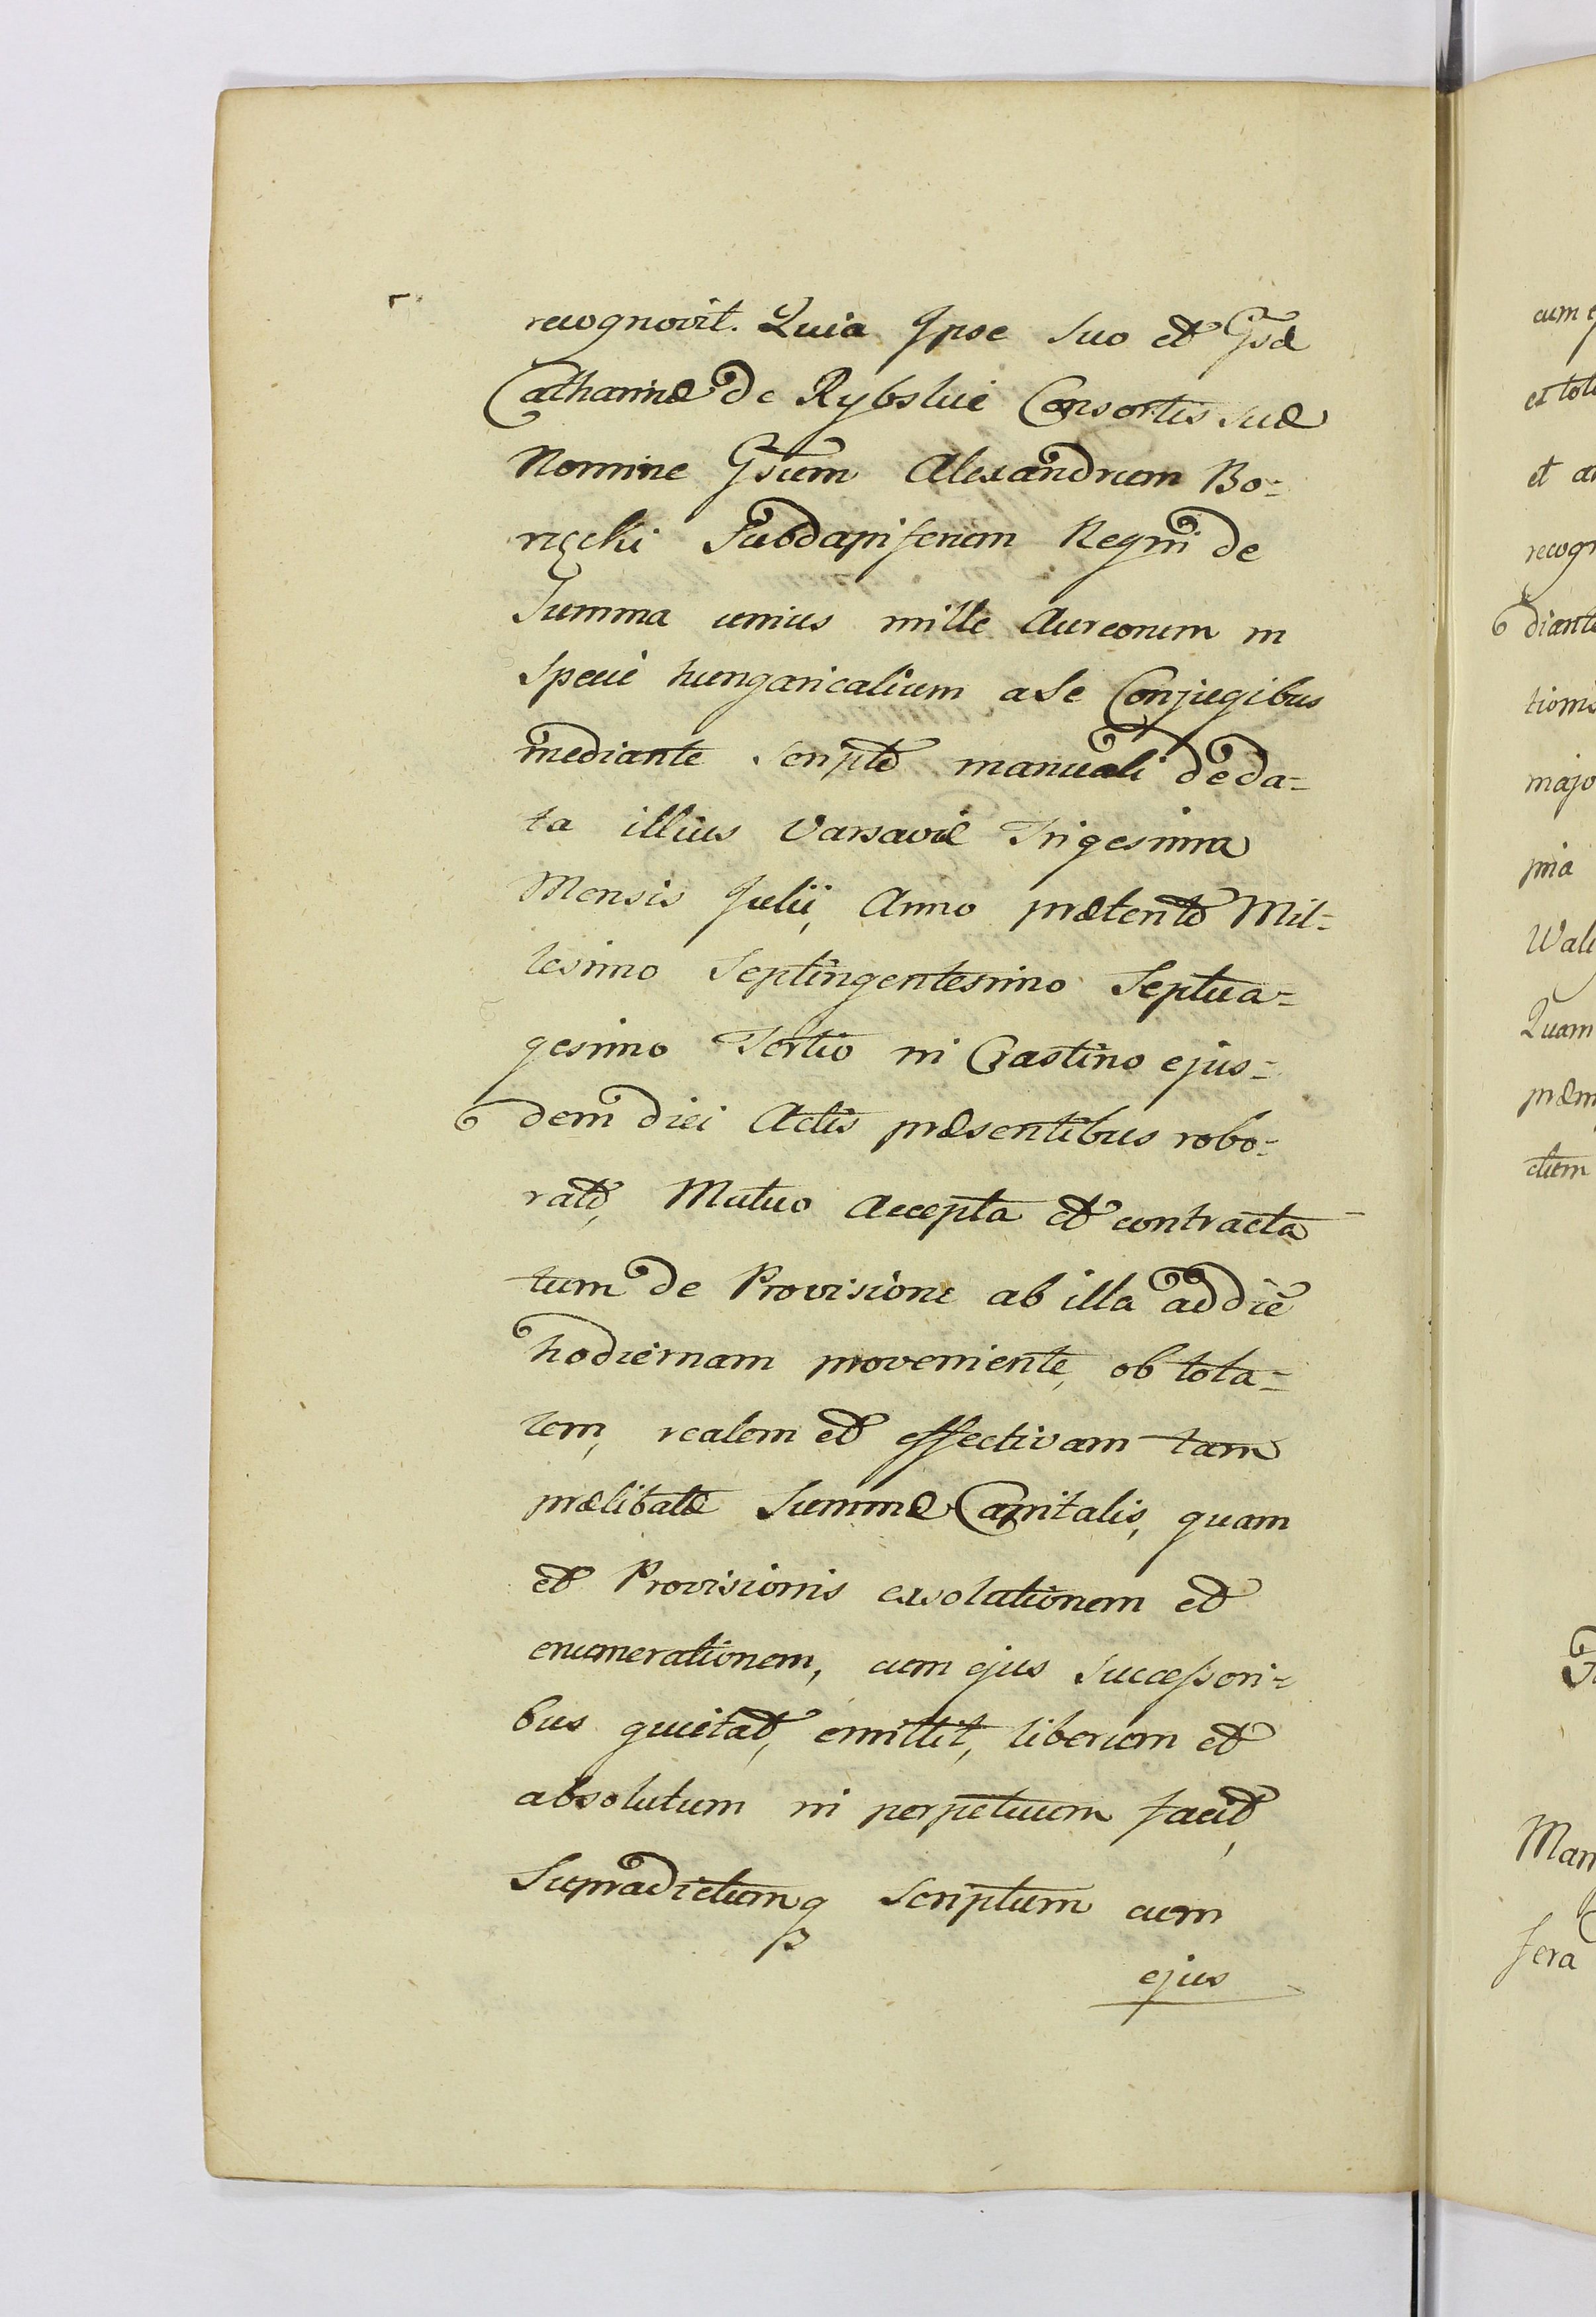 recognovit. Quia Ipse suo et Gsæ
Catharinæ de Rybskie Consortis suæ
Nomine Gsum Alexandrum Bo=
ręcki Subdapiferum Regni de
Summa unius mille Aureorum in
specie hungaricalium a se Conjugibus
mediante scripto manuali de da=
ta illius Varsaviæ Trigesima
Mensis Julii, Anno prætento Mil=
lesimo Septingentesimo Septua=
gesimo Tertio in Crastino ejus=
dem diei Actis præsentibus robo=
rato, Mutuo Accepta et contracta
tum de Provisione ab illa ad die
hodiernam proveniente, ob tota=
lem, realem et effectivam tam
prælibatæ Summæ Capitalis, quam
et Provisionis exsolutionem et
enumerationem, cum ejus successori=
bus quietat, emittit, liberum et
absolutum in perpetuum facit,
Supradictumq scriptum cum
ejus
cum
et
recogn
diante
tionis
majo
Quam
ctum
Man
fera